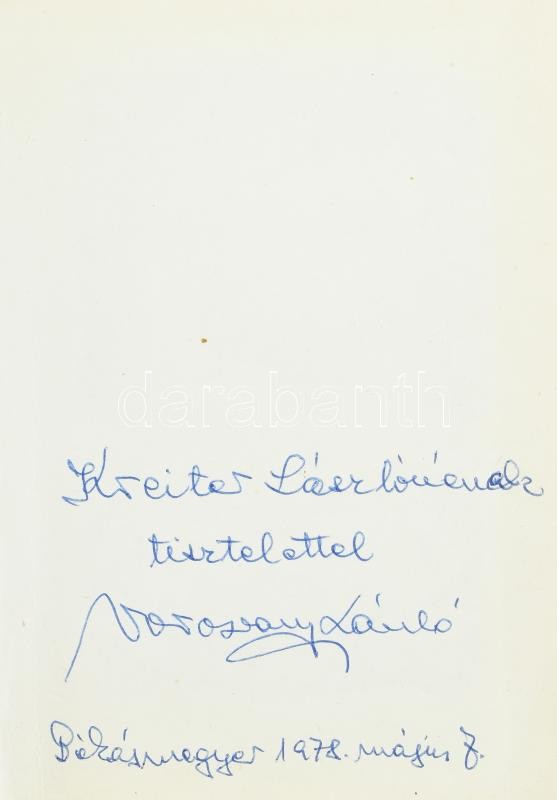 darabanth
Kreiter Lászlónénak
tisztelettel
Vorosvary László
Békásmegyer 1978. május 7.